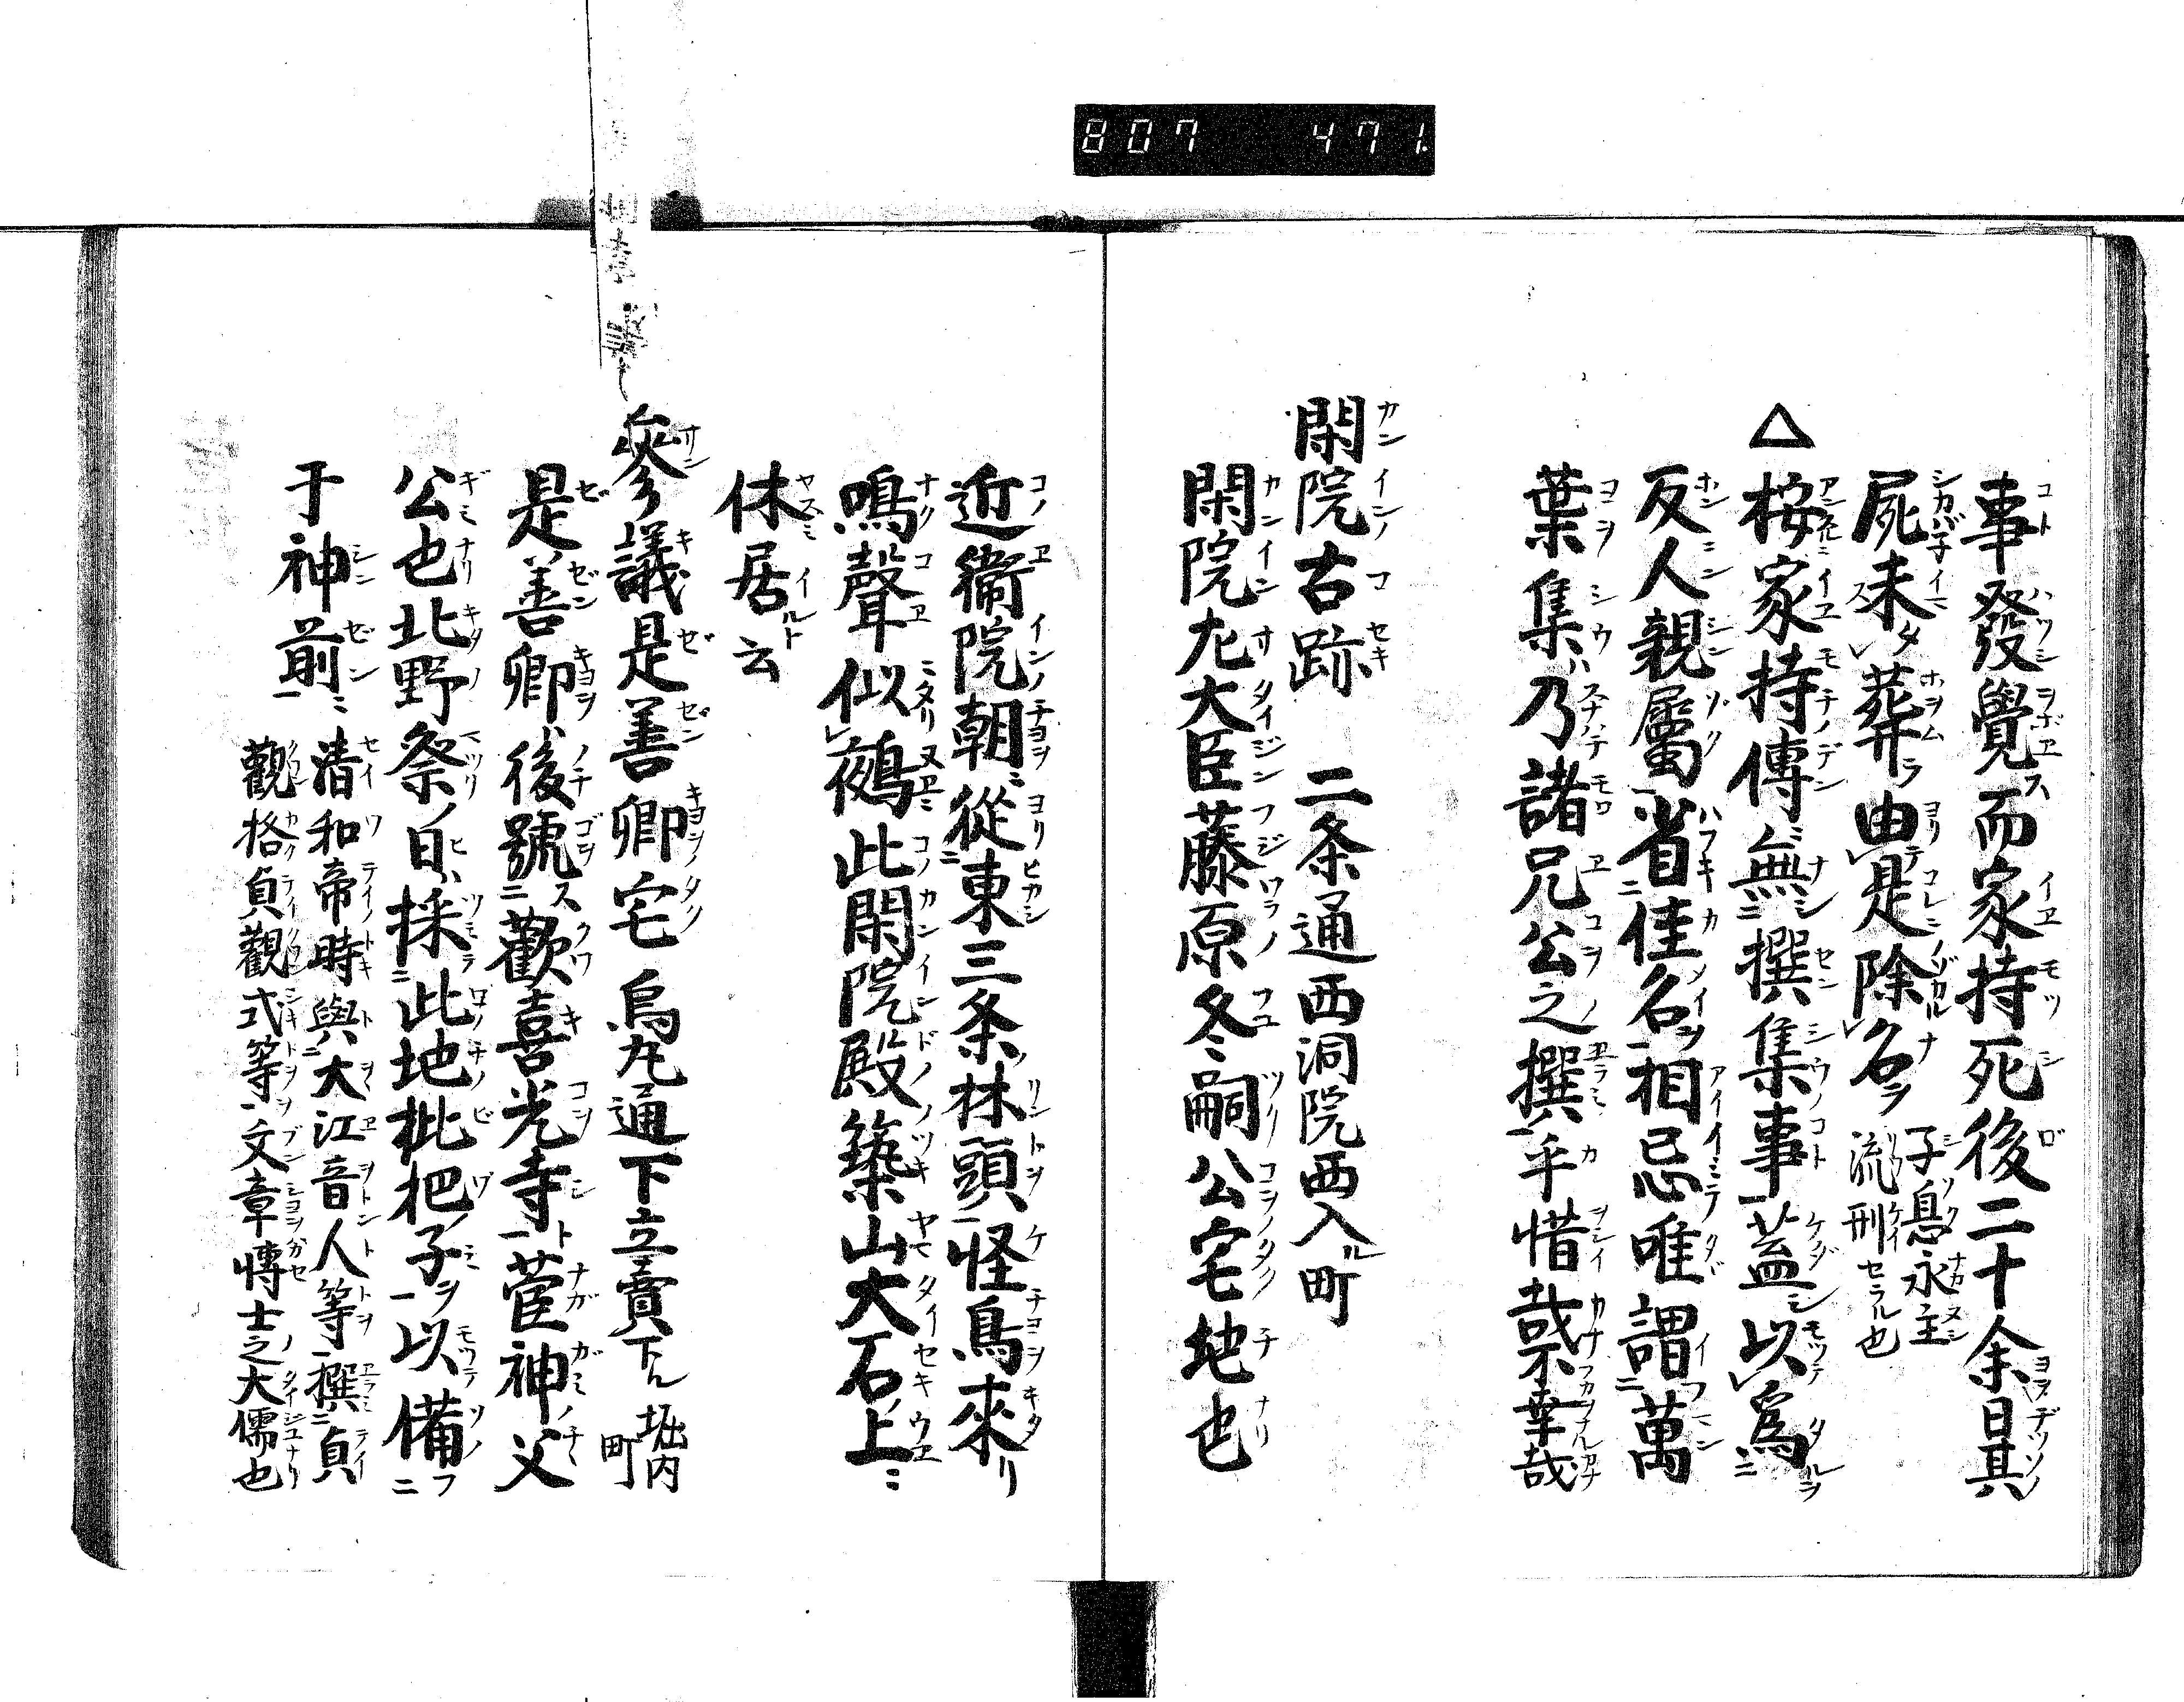 807 471.
事發覺而家持死後二十余日其
屍未葬由是除名 子息永主
流刑セラル也
△按家持傳無撰集事蓋以為
反人親屬省佳名相忌唯謂萬
葉集乃諸兄公之撰乎惜哉不幸哉
閑院古跡 二条通西洞院西入ル町
閑院左大臣藤原冬嗣公宅地也
近衞院朝從東三条林頭怪鳥來リ
鳴聲似鵺此閑院殿築山大石上ニ
休居云
參議是善卿宅 烏丸通下立賣下ル 堀内
町
是善卿後號歡喜光寺菅神父
公也北野祭ノ日採此地枇杷子以備
于神前 清和帝時與大江音人等撰貞
觀格貞觀式等文章博士之大儒也